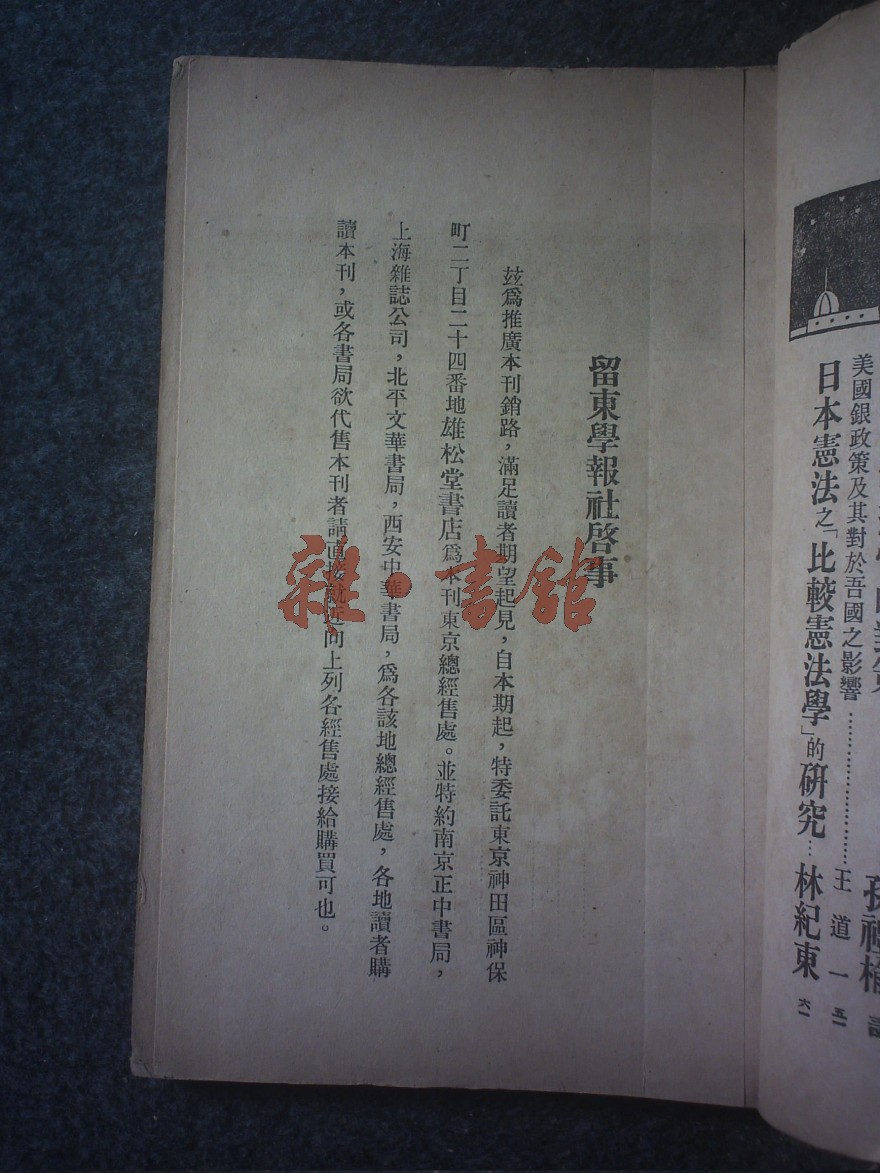 美國銀政策及其對於吾國之影響…………………王道一 五一
日本憲法之「比較憲法學」的研究…林紀東 六一
留東學報社啓事
玆爲推廣本刊銷路，滿足讀者期望起見，自本期起，特委託東京神田區神保
町二丁目二十四番地雄松堂書店爲本刊東京總經售處。並特約南京正中書局，
上海雜誌公司，北平文華書局，西安中華書局，爲各該地總經售處，各地讀者購
讀本刊，或各書局欲代售本刊者請直接就近向上列各經售處接給購買可也。
雜·書館